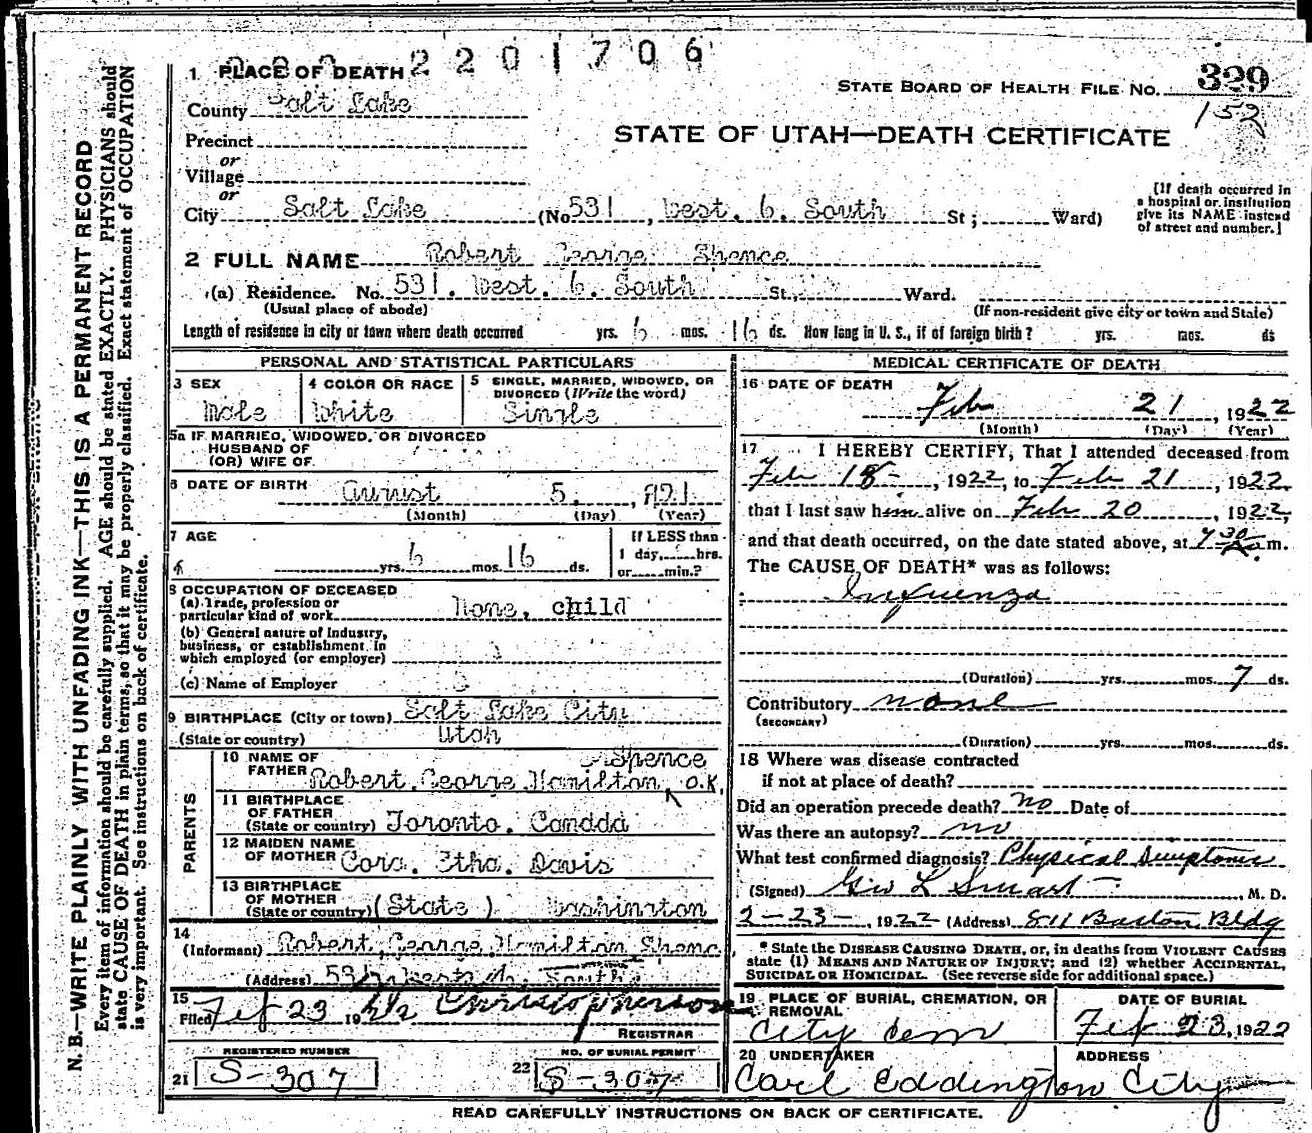 2201706
1 PLACE OF DEATH
STATE BOARD OF HEALTH FILE NO. 329
County Salt Lake
152
STATE OF UTAH—DEATH CERTIFICATE
Precinct
or
Village
or
City Salt Lake (No 531, West. 6. South St; Ward)
[If death occurred in
a hospital or institution
give its NAME instead
of street and number.]
2 FULL NAME Robert George Spence
(a) Residence. No. 531. West. 6. South St., Ward.
(Usual place of abode)
(If non-resident give city or town and State)
Length of residence in city or town where death occurred yrs. 6 mos. 16 ds. How long in U. S., if of foreign birth? yrs. mos. ds
PERSONAL AND STATISTICAL PARTICULARS
3 SEX
Male
4 COLOR OR RACE
White
5 SINGLE, MARRIED, WIDOWED, OR
DIVORCED (Write the word)
Single
5a IF MARRIED, WIDOWED, OR DIVORCED
HUSBAND OF
(OR) WIFE OF
6 DATE OF BIRTH August 5, 1921
(Month) (Day) (Year)
7 AGE
yrs. 6 mos. 16 ds.
If LESS than
1 day, hrs.
or min.?
8 OCCUPATION OF DECEASED
(a) Trade, profession or
particular kind of work None, child
(b) General nature of Industry,
business, or establishment in
which employed (or employer)
(c) Name of Employer
9 BIRTHPLACE (City or town) Salt Lake City
(State or country) Utah
PARENTS
10 NAME OF
FATHER Robert George Hamilton Spence O.K.
11 BIRTHPLACE
OF FATHER
(State or country) Toronto. Canada
12 MAIDEN NAME
OF MOTHER Cora. Etha. Davis
13 BIRTHPLACE
OF MOTHER
(State or country) (State) Washington
14
(Informant) Robert George Hamilton Spence
(Address) 531 West 6. South
15
Filed Feb 23 1922 Christopherson
REGISTRAR
REGISTERED NUMBER
21 S-307
NO. OF BURIAL PERMIT
22 S-307
MEDICAL CERTIFICATE OF DEATH
16 DATE OF DEATH
Feb 21, 1922
(Month) (Day) (Year)
17 I HEREBY CERTIFY, That I attended deceased from
Feb 18, 1922, to Feb 21, 1922
that I last saw him alive on Feb 20, 1922,
and that death occurred, on the date stated above, at 7 30 A. m.
The CAUSE OF DEATH* was as follows:
Influenza
(Duration) yrs. mos. 7 ds.
Contributory none
(SECONDARY)
(Duration) yrs. mos. ds.
18 Where was disease contracted
if not at place of death?
Did an operation precede death? no Date of
Was there an autopsy? no
What test confirmed diagnosis? Physical Symptoms
(Signed) Geo L Smart, M. D.
2-23-, 1922 (Address) 811 Boston Bldg
* State the DISEASE CAUSING DEATH, or, in deaths from VIOLENT CAUSES
state (1) MEANS AND NATURE OF INJURY; and (2) whether ACCIDENTAL,
SUICIDAL OR HOMICIDAL. (See reverse side for additional space.)
19 PLACE OF BURIAL, CREMATION, OR
REMOVAL
City Cem
DATE OF BURIAL
Feb 23, 1922
20 UNDERTAKER
Carl Eddington
ADDRESS
City
READ CAREFULLY INSTRUCTIONS ON BACK OF CERTIFICATE.
N. B.—WRITE PLAINLY WITH UNFADING INK—THIS IS A PERMANENT RECORD
Every item of information should be carefully supplied. AGE should be stated EXACTLY. PHYSICIANS should
state CAUSE OF DEATH in plain terms, so that it may be properly classified. Exact statement of OCCUPATION
is very important. See instructions on back of certificate.